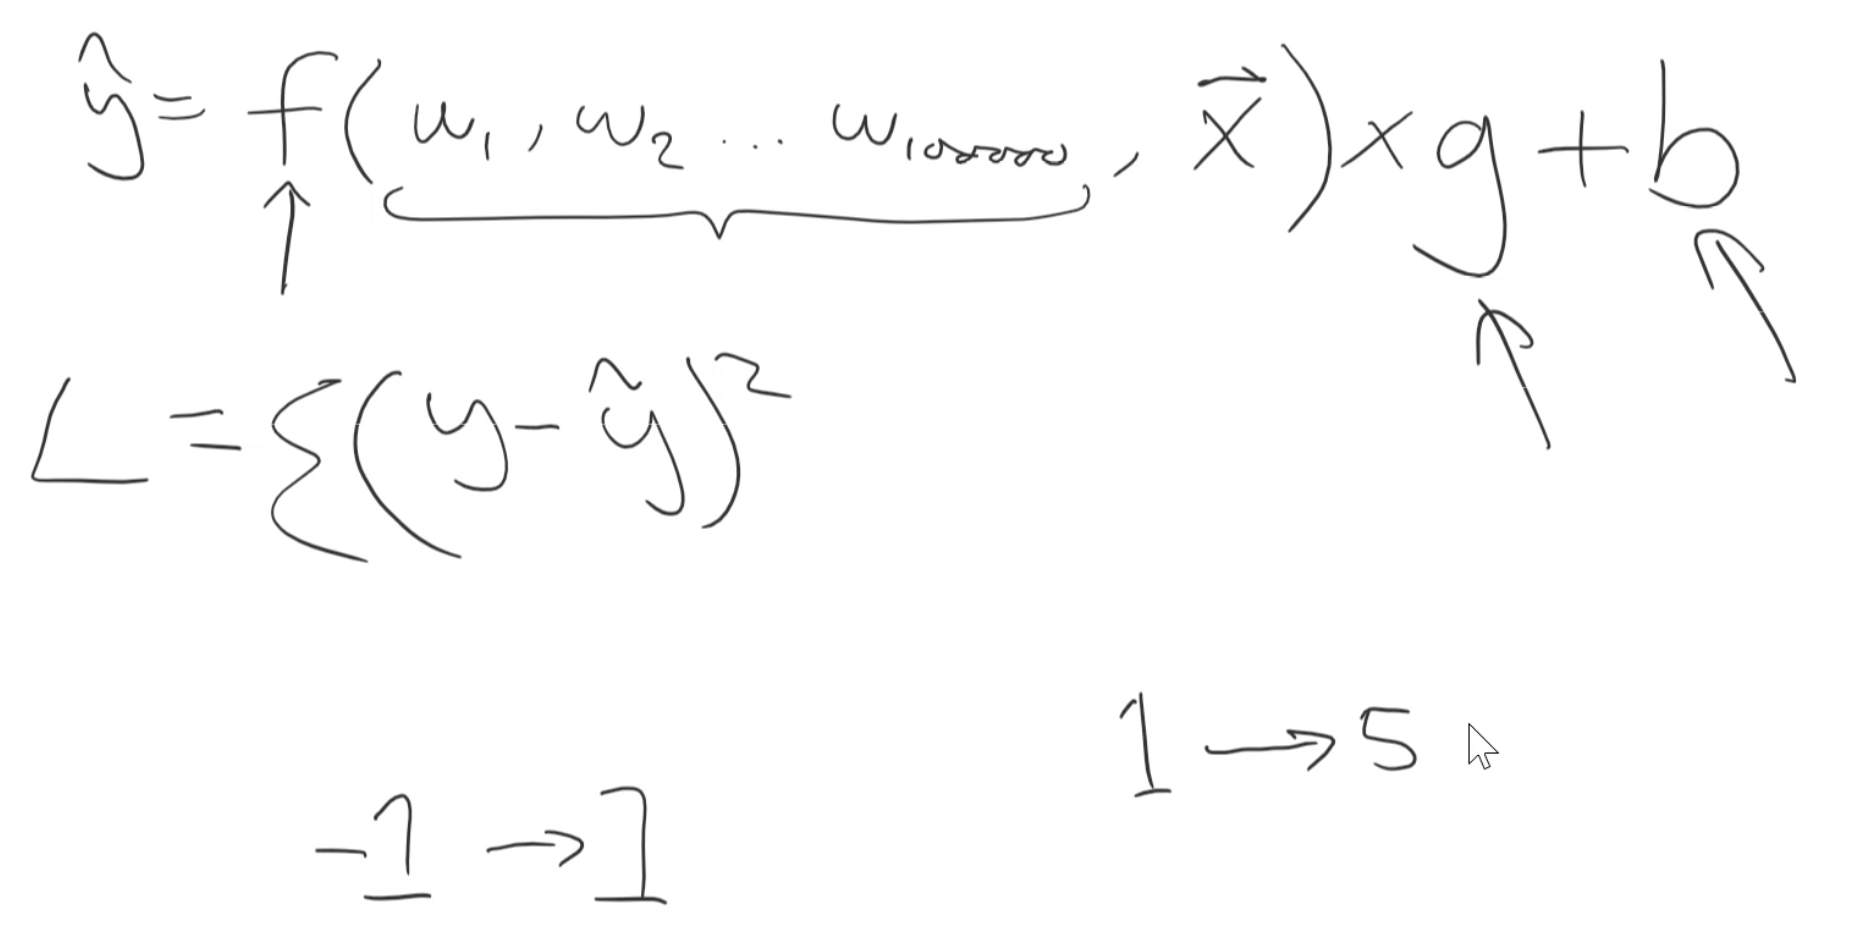 ŷ = f(w₁, w₂ ... w₁₀₀₀₀₀₀, x⃗) x g + b
L = Σ(y - ŷ)²
1 → 5
-1 → 1